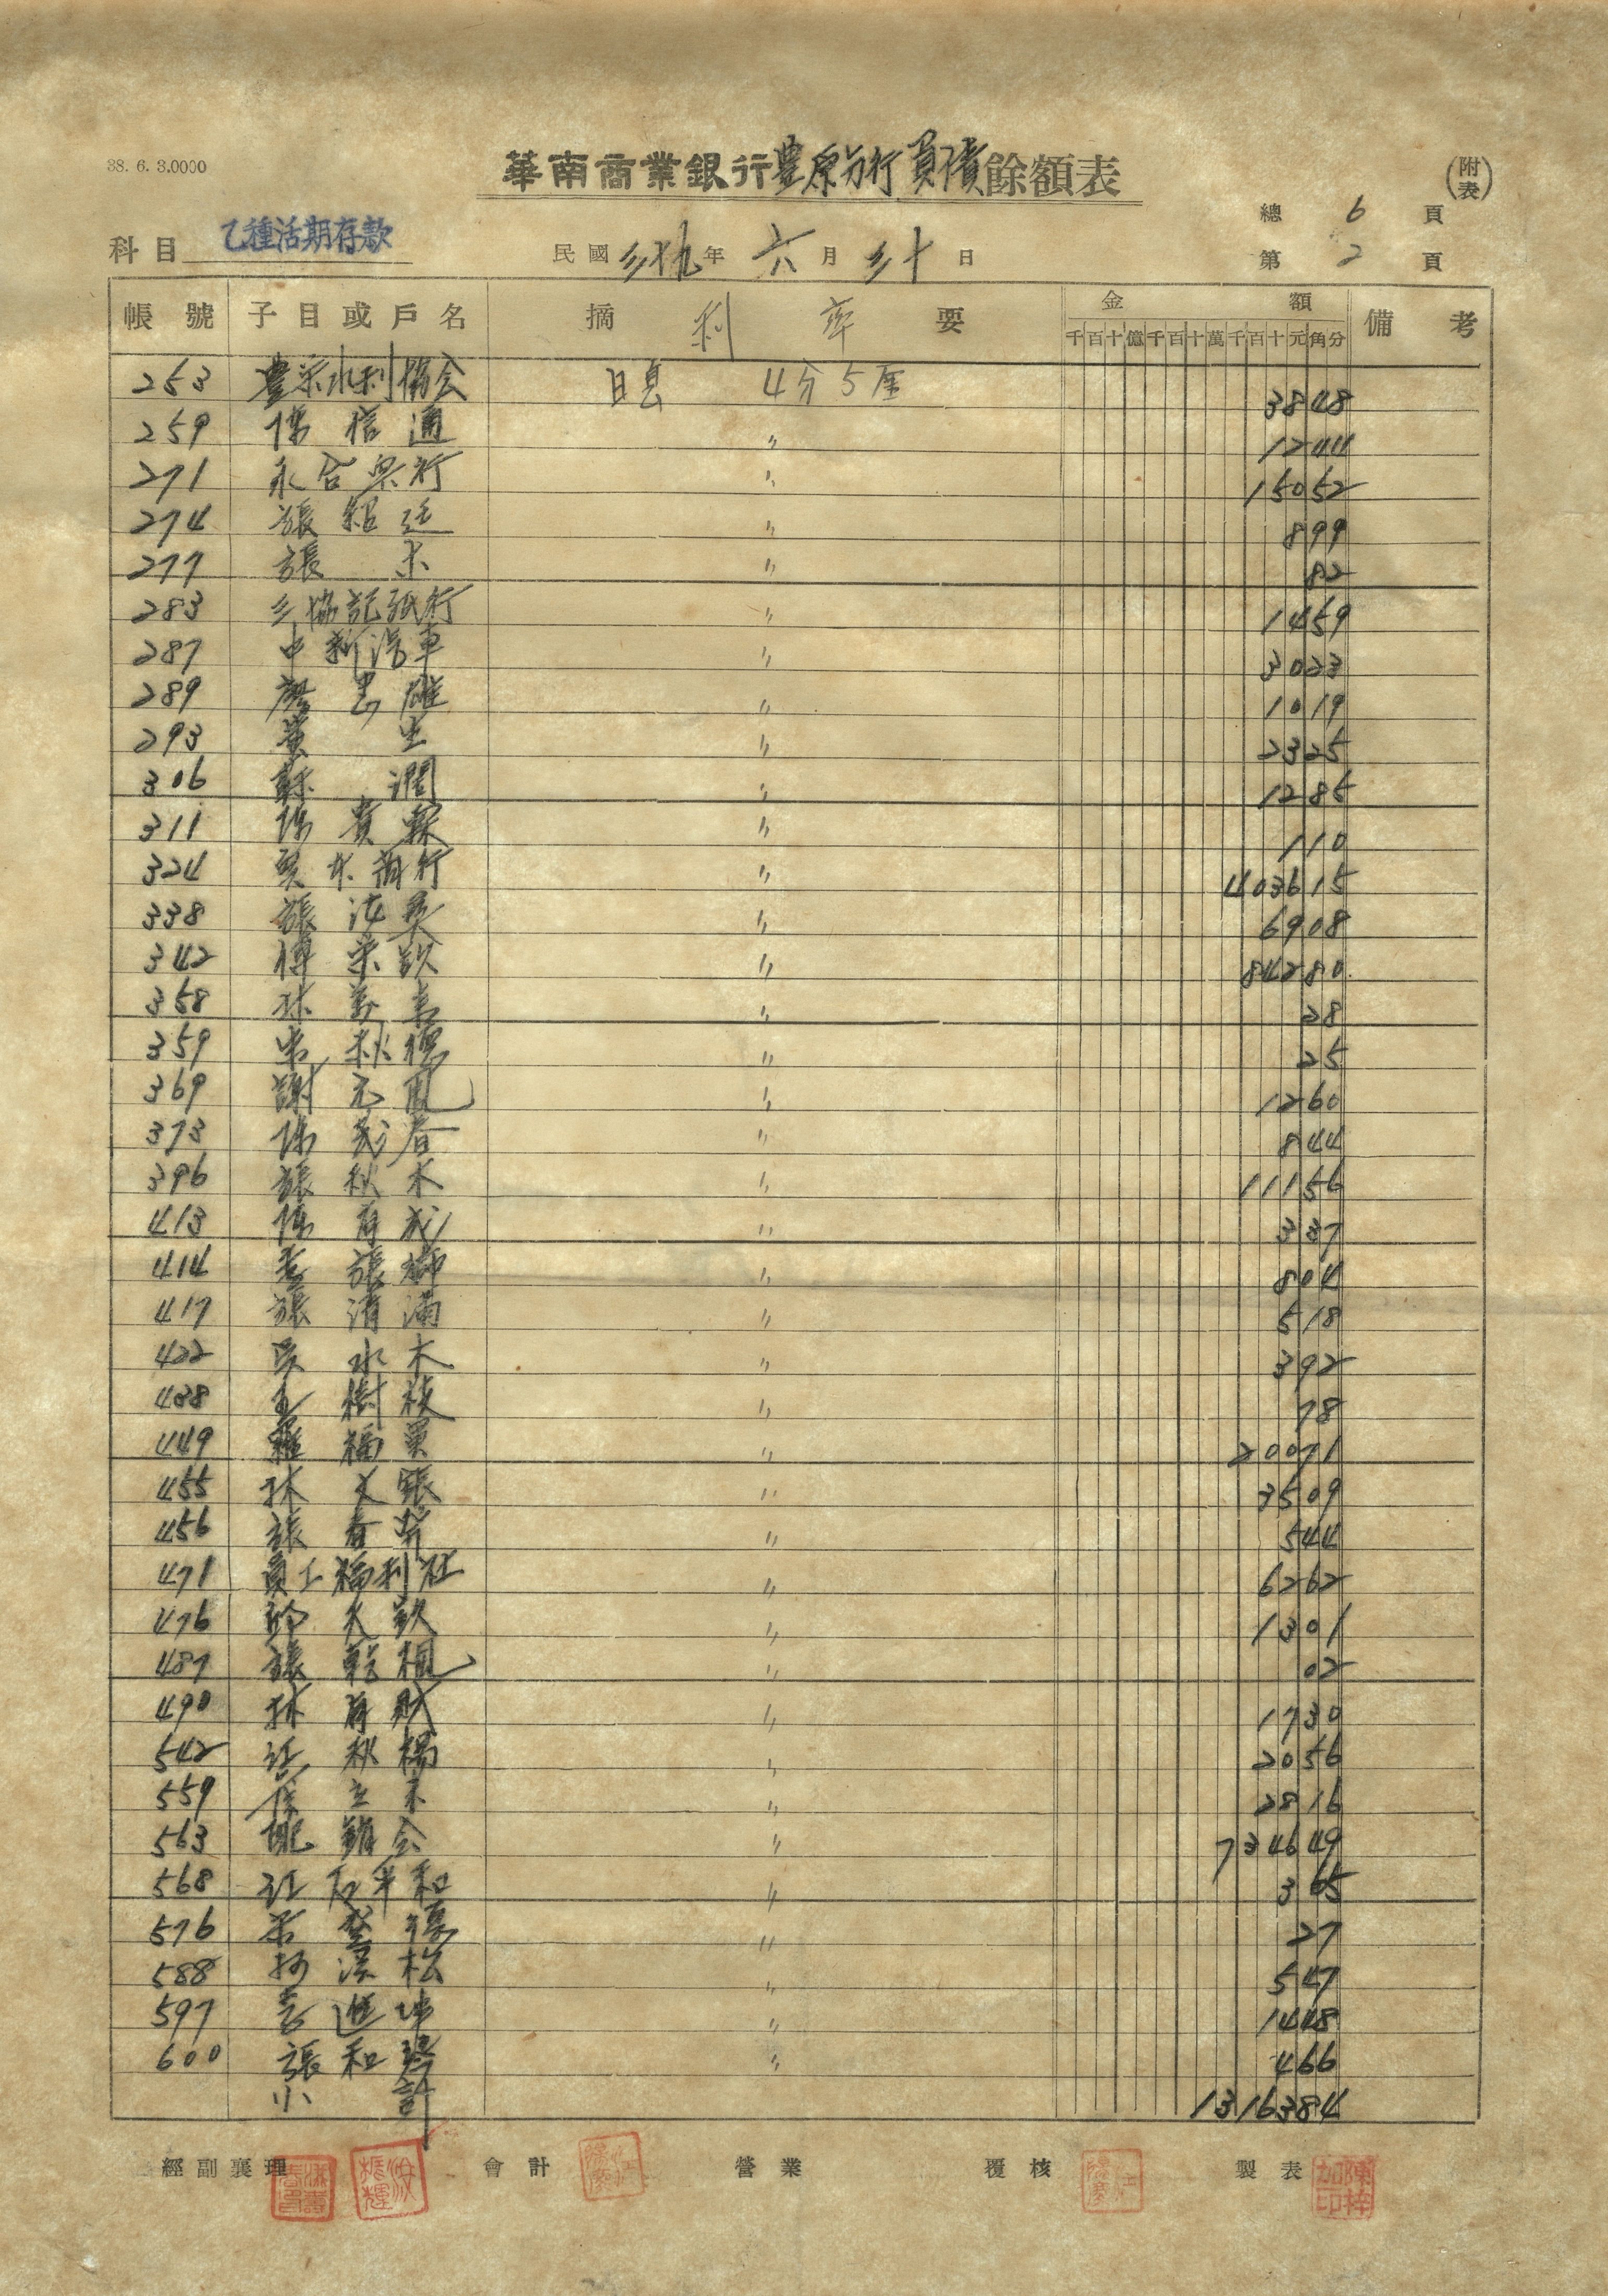 38. 6. 3.0000
華南商業銀行豊原分行負債餘額表
(附表)
總 6 頁
科目 乙種活期存款 民國 三十九 年 六 月 三十 日 第 2 頁
帳號 子目或戶名 摘 利率 要 金額 備考
千百十億千百十萬千百十元角分
253 豊榮水利協会 日息 4分5厘 3848
259 陳信通 〃 1244
271 永合興行 〃 15052
274 張紹廷 〃 899
277 張木 〃 82
283 三協記紙行 〃 1459
287 中新汽車 〃 3023
289 廖忠雄 〃 1019
293 黃生 〃 2325
306 蘇潤 〃 1285
311 陳貴 〃 110
324 木商行 〃 403615
338 張汝 〃 6908
342 傅榮欽 〃 84280
358 林萬 〃 28
359 秋德 〃 25
369 謝元鳳 〃 1260
373 陳茂春 〃 844
396 張秋木 〃 11156
413 陳有成 〃 337
414 張 〃 804
417 張清滿 〃 518
422 吳水木 〃 392
438 王樹枝 〃 78
449 羅福 〃 20071
455 林文張 〃 3509
456 張春 〃 544
471 員工福利社 〃 6262
476 大欽 〃 1301
487 張乾 〃 02
490 林有財 〃 1730
542 江秋楊 〃 2056
559 〃 2816
563 配銷会 〃 734649
568 江 和 〃 365
576 〃 27
588 柯溪松 〃 547
597 進坤 〃 1448
600 張和 〃 466
小計 1316384
經副襄理 會計 營業 覆核 製表